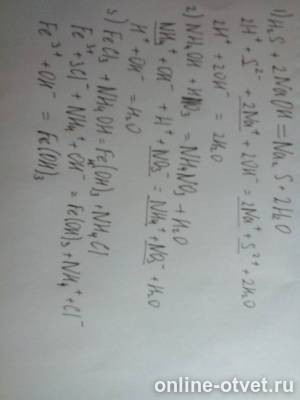 1) H₂S + 2NaOH = Na₂S + 2H₂O
2H⁺ + S²⁻ + 2Na⁺ + 2OH⁻ = 2Na⁺ + S²⁺ + 2H₂O
2H⁺ + 2OH⁻ = 2H₂O
2) NH₄OH + HNO₃ = NH₄NO₃ + H₂O
NH₄⁺ + OH⁻ + H⁺ + NO₃⁻ = NH₄⁺ + NO₃⁻ + H₂O
H⁺ + OH⁻ = H₂O
3) FeCl₃ + NH₄OH = Fe(OH)₃ + NH₄Cl
Fe³⁺ + 3Cl⁻ + NH₄⁺ + OH⁻ = Fe(OH)₃ + NH₄⁺ + Cl⁻
Fe³⁺ + OH⁻ = Fe(OH)₃
online-otvet.ru